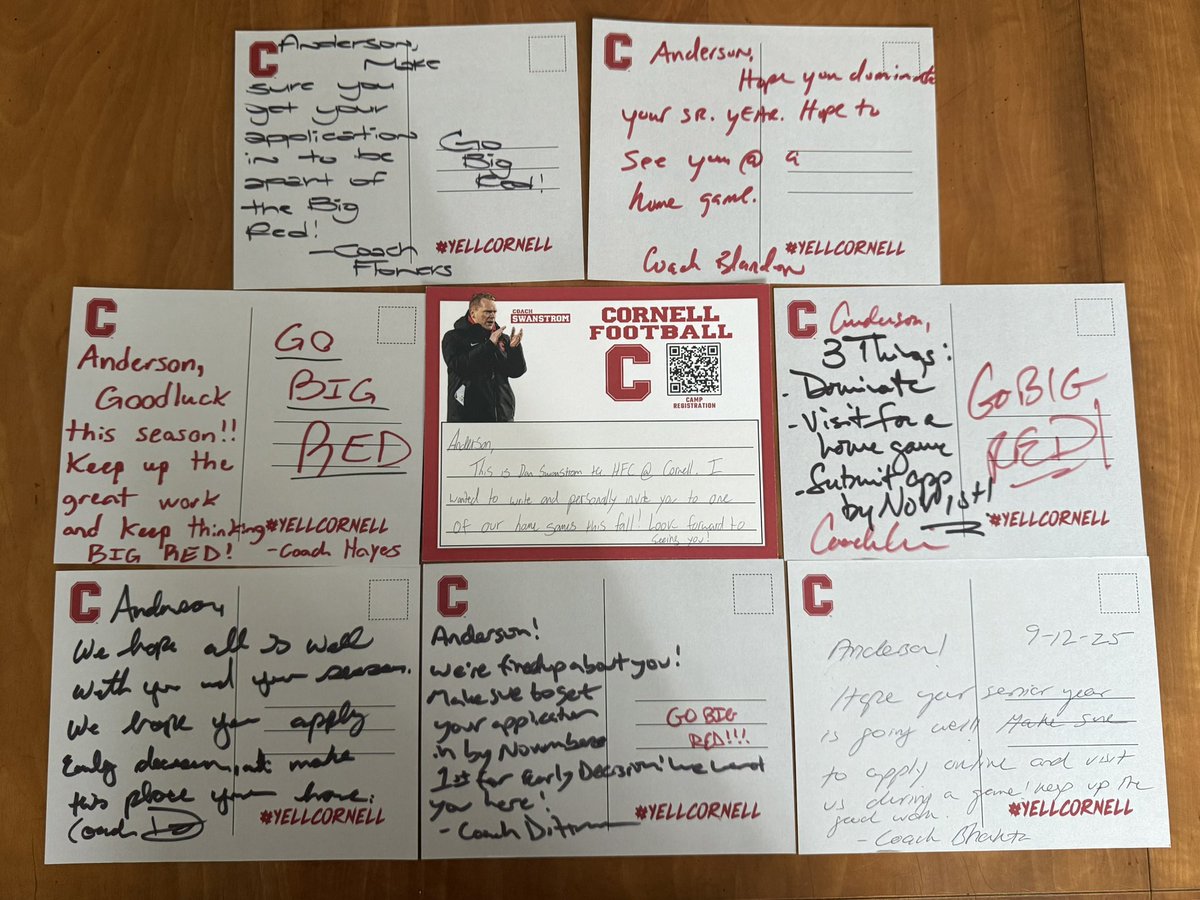 C
Anderson,
Make
sure you
get your
application
in to be
apart of
the Big
Red!
-Coach
Flowers
Go
Big
Red!
#YELLCORNELL
C
Anderson,
Hope you dominate
your SR. YEAR. Hope to
See you @ a
home game.
Coach Blandon
#YELLCORNELL
C
Anderson,
Goodluck
this season!!
Keep up the
great work
and keep thinking
BIG RED!
-Coach Hayes
GO
BIG
RED
#YELLCORNELL
COACH
SWANSTROM
CORNELL
FOOTBALL
C
CAMP
REGISTRATION
Anderson,
This is Dan Swanstrom the HFC @ Cornell. I
wanted to write and personally invite you to one
of our home games this fall! Look forward to
seeing you!
C
Anderson,
3 Things:
- Dominate
- Visit for a
home game
- Submit app
by Nov 1st!
Coach
GO BIG
RED!
#YELLCORNELL
C
Anderson,
We hope all is well
with you and your season.
We hope you apply
Early decision, and make
this place your home.
Coach
#YELLCORNELL
C
Anderson!
We're fired up about you!
Make sure to get
your application
in by November
1st for Early Decision! We want
you here!
- Coach
GO BIG
RED!!!
#YELLCORNELL
C
9-12-25
Anderson!
Hope your senior year
is going well! Make sure
to apply online and visit
us during a game! Keep up the
good work.
- Coach
#YELLCORNELL